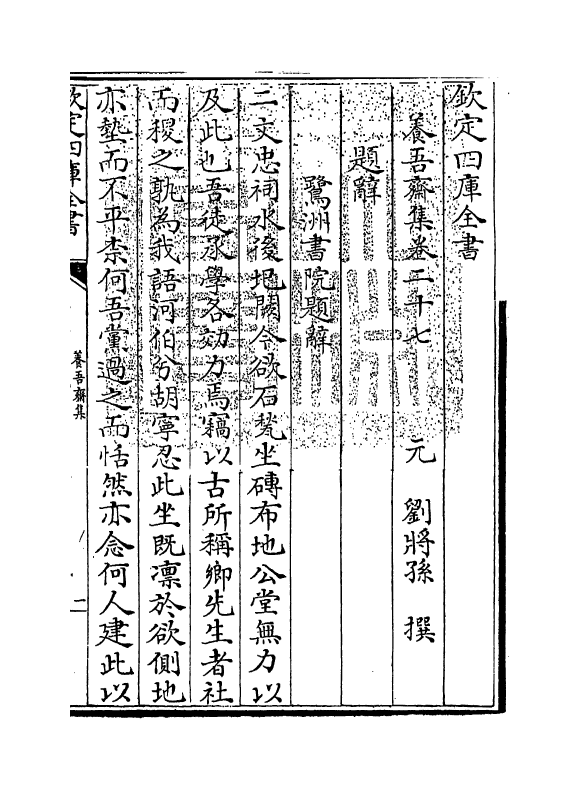 欽定四庫全書
養吾齋集卷二十七　元　劉將孫　撰
題辭
鷺洲書院題辭
二文忠祠水後地闕今欲石甃坐磚布地公堂無力以
及此也吾徒承學各効力焉竊以古所稱鄉先生者社
而稷之孰為我語河伯兮胡寧忍此坐既凛於欲側地
亦墊而不平柰何吾黨過之而恬然亦念何人建此以
欽定四庫全書
養吾齋集